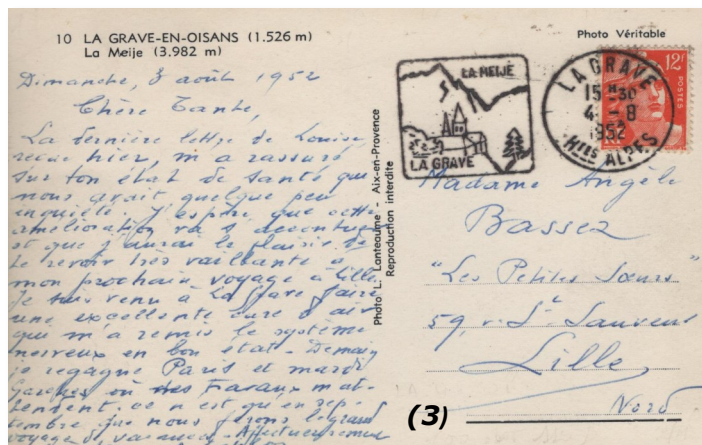 10 LA GRAVE-EN-OISANS (1.526 m)
La Meije (3.982 m)
Photo Véritable
Dimanche, 3 août 1952
Chère Tante,
La dernière lettre de Louise,
reçue hier, m'a rassuré
sur ton état de santé qui
nous avait quelque peu
inquiété. J'espère que cette
amélioration va s'accentuer
et que j'aurai le plaisir de
te revoir très vaillante à
mon prochain voyage à Lille.
Je suis venu à La Grave faire
une excellente cure d'air
qui m'a remis le système
nerveux en bon état - Demain
je regagne Paris et mardi
Garches où des travaux m'at-
tendent. ce n'est qu'en sep-
tembre que nous ferons le grand
voyage de vacances - Affectueusement
Photo L. Lanteaume - Aix-en-Provence
Reproduction interdite
LA MEIJE
LA GRAVE
LA GRAVE
15 H 30
4 - 8
1952
Htes ALPES
12F
POSTES
Madame Angèle
Bassez
"Les Petites Sœurs"
59, r. St Sauveur
Lille
Nord
(3)